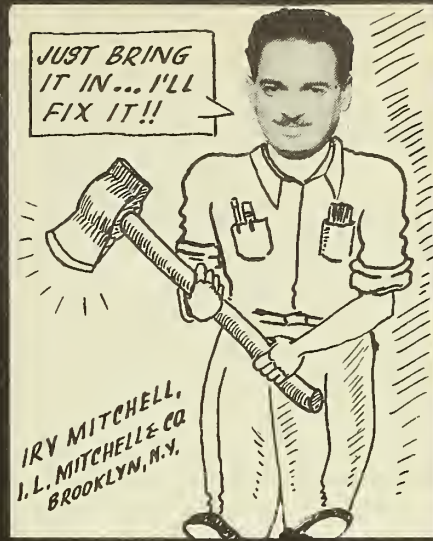 JUST BRING
IT IN... I'LL
FIX IT!!
IRV MITCHELL,
I. L. MITCHELL & CO.
BROOKLYN, N.Y.